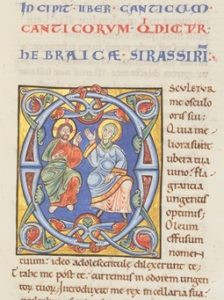 INCIPIT LIBER CANTICUM
CANTICORVM Q DICITVR
HEBRAICÆ SIRASSIRĪ
OSCVLETVR
me osculo
oris sui;
Quia me
liora sunt
ubera tua
uino, fla
grancia
ungentis
optimis;
Oleum
effusum
nomen
tuum: ideo adolescentulę dilexerunt te;
trahe me post te. curremus in odorem ungen
torum tuorum. Introduxit me rex in cellaria sua